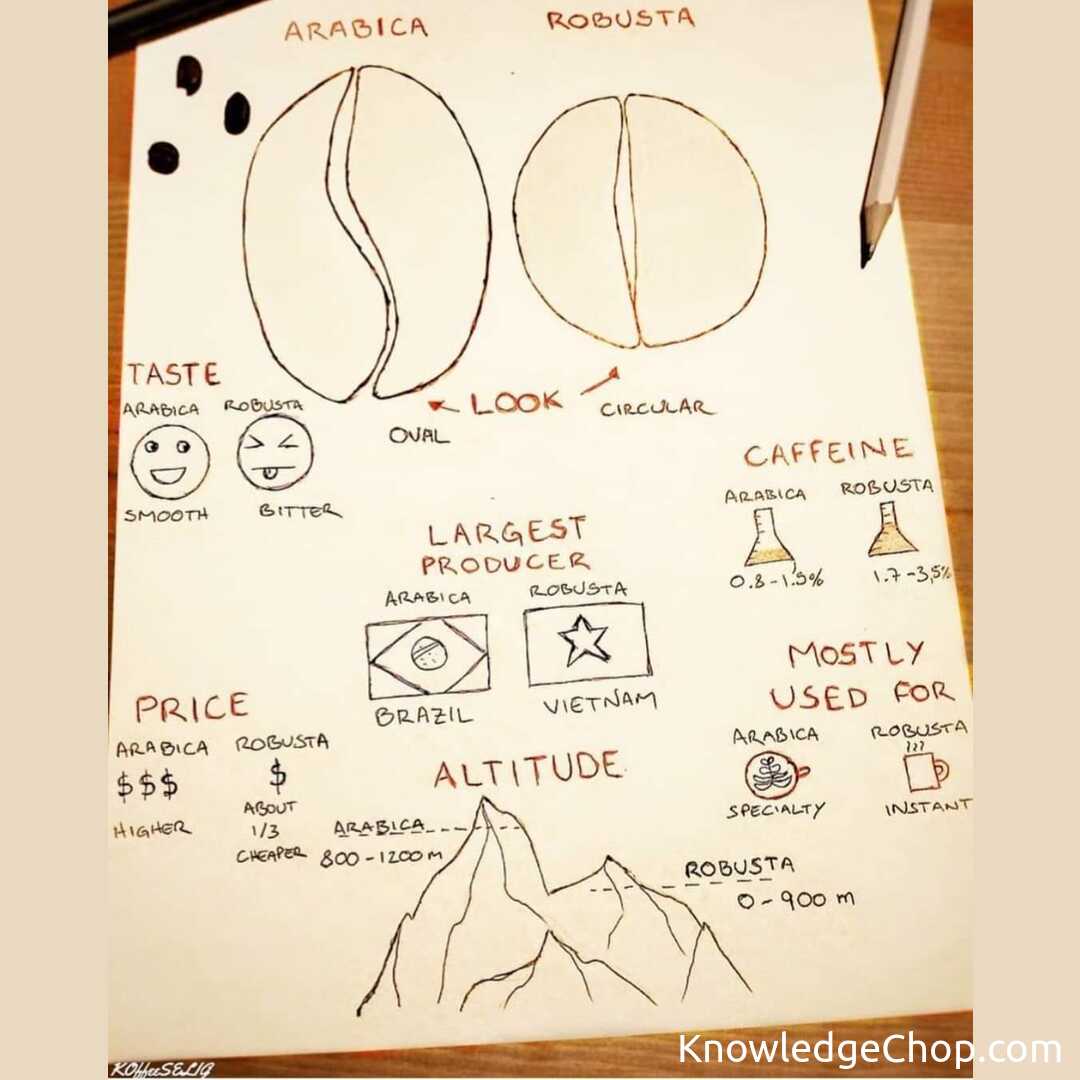 ARABICA
ROBUSTA
TASTE
ARABICA ROBUSTA
SMOOTH BITTER
LOOK
OVAL
CIRCULAR
CAFFEINE
ARABICA ROBUSTA
0.8-1.5% 1.7-3,5%
LARGEST
PRODUCER
ARABICA ROBUSTA
BRAZIL VIETNAM
MOSTLY
USED FOR
ARABICA ROBUSTA
SPECIALTY INSTANT
PRICE
ARABICA ROBUSTA
$$$ $
HIGHER
ABOUT
1/3
CHEAPER
ALTITUDE
ARABICA
800-1200 m
ROBUSTA
0-900 m
KOffeeSELIG
KnowledgeChop.com